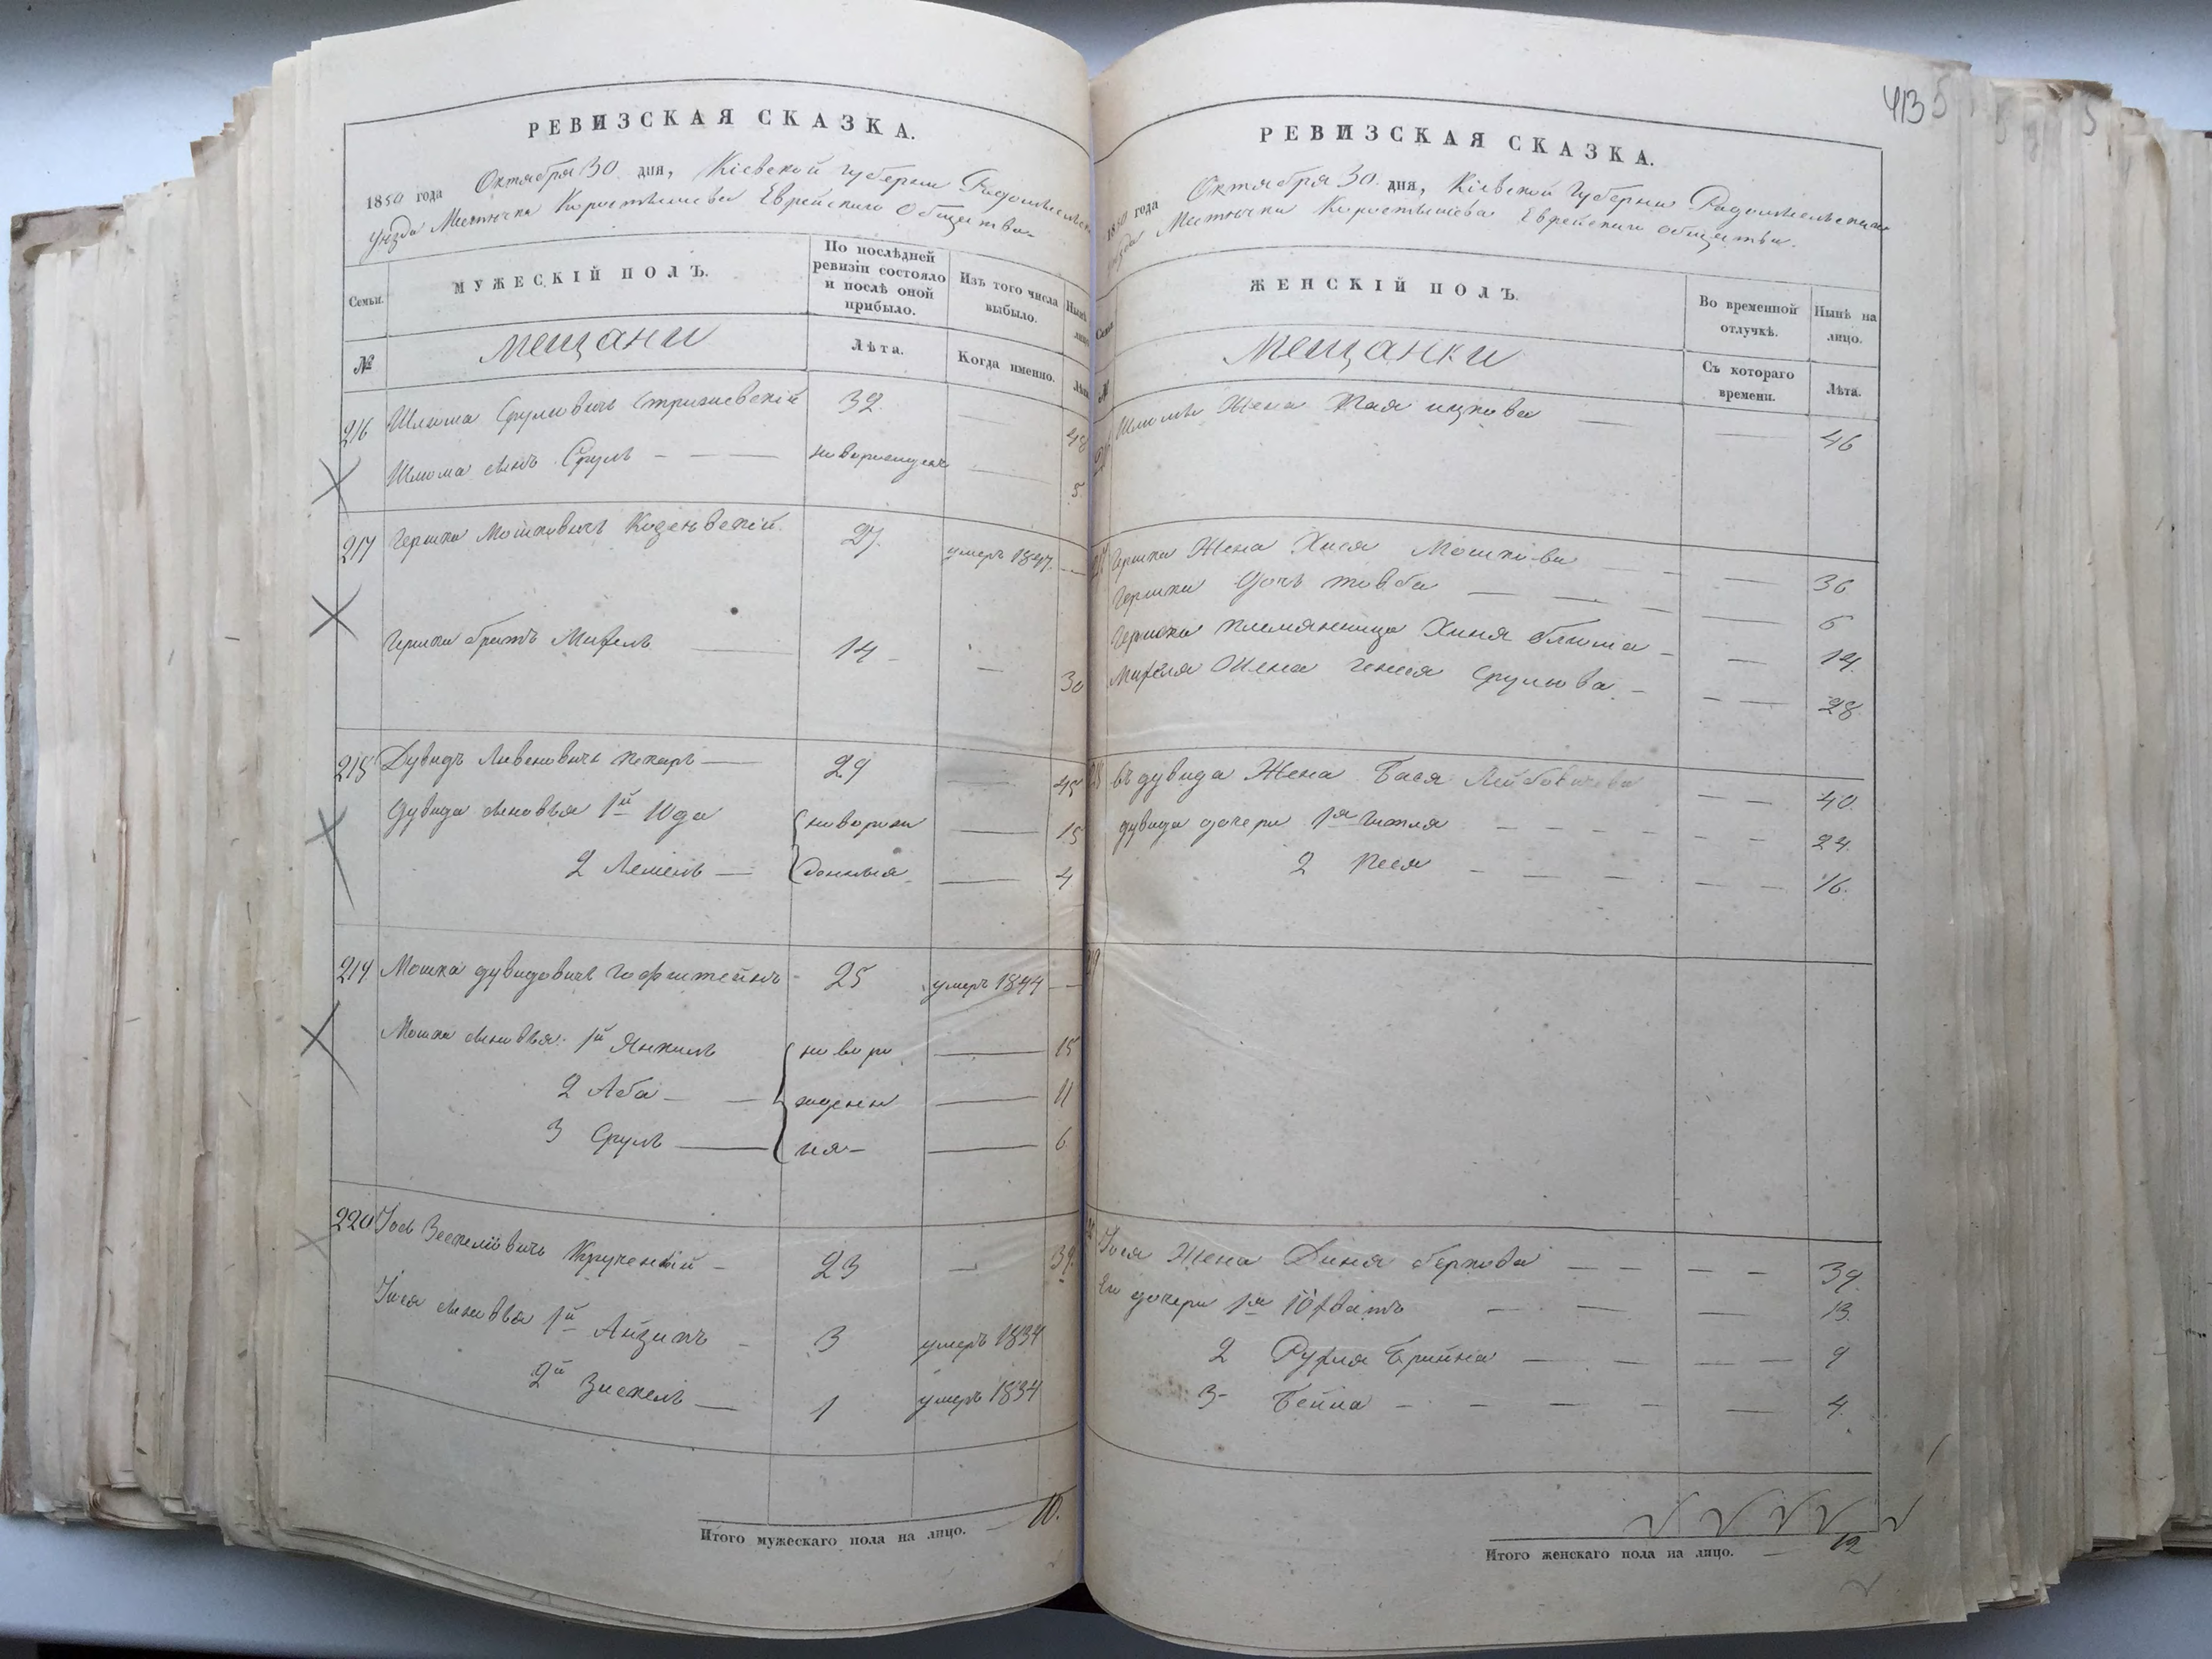 413
РЕВИЗСКАЯ СКАЗКА.
1850 года Октября 30 дня, Кіевской губерніи
уезда Местечка Коростышева Еврейскаго Общества
Семьи.
МУЖЕСКІЙ ПОЛЪ.
По послѣдней ревизіи состояло и послѣ оной прибыло.
Изъ того числа выбыло.
№
мещани
Лѣта.
Когда именно.
216 Шлiома Сруловичь 32 48
Шлiома сынъ Сруль новорожден 5
217 Гершко Мошковичь 27 умеръ 1847
Гершка братъ Михель 14 30
218 Дувидъ Лейбовичь пекарь 29 45
Дувида сыновья 1й Юда новорож 15
2 Лемель денныя 4
219 Мошка дувидовичь Гофштейнъ 25 умеръ 1844
Мошка сыновья 1й Янкель новоро 15
2 Аба жденн 11
3 Сруль ыя 6
220 Іось Зеекелiовичь 23 39
Іося сыновья 1й Айзикъ 3 умеръ 1834
2й Зиекель 1 умеръ 1834
Итого мужескаго пола на лицо. 10.
РЕВИЗСКАЯ СКАЗКА.
1850 года Октября 30 дня, Кіевской Губерніи Радомысльскаго
уезда Местечка Коростышева Еврейскаго общества.
ЖЕНСКІЙ ПОЛЪ.
Во временной отлучкѣ.
Нынѣ на лицо.
Мещанки
Съ котораго времени.
Лѣта.
Шлiомы Жена Хая ицкова 46
217 Гершка Жена Хася Мошкова 36
Гершка Дочь товба 6
Гершка племянница Хиня блюма 14
Михеля Жена Генся Срулова 28
дувида Жена Бася Лейбовичева 40
дувида дочери 1я 24
2 Песя 16
Іося Жена Диня беркова 39
Его дочери 1я Юхвитъ 13
2 Рухля Брийна 9
3 Бейла 4
Итого женскаго пола на лицо. 12